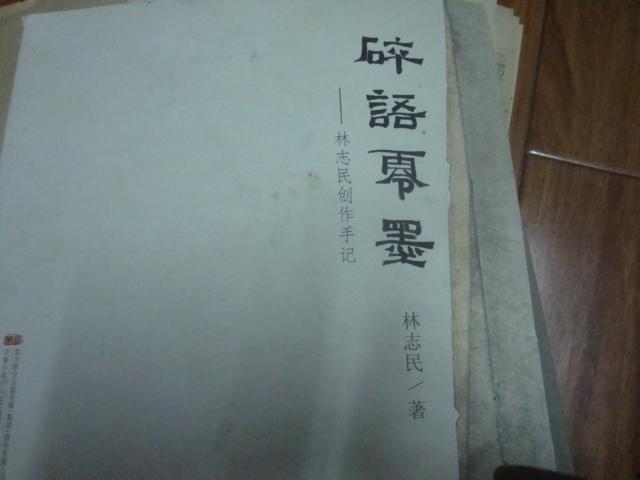 碎語零墨
——林志民创作手记
林志民／著